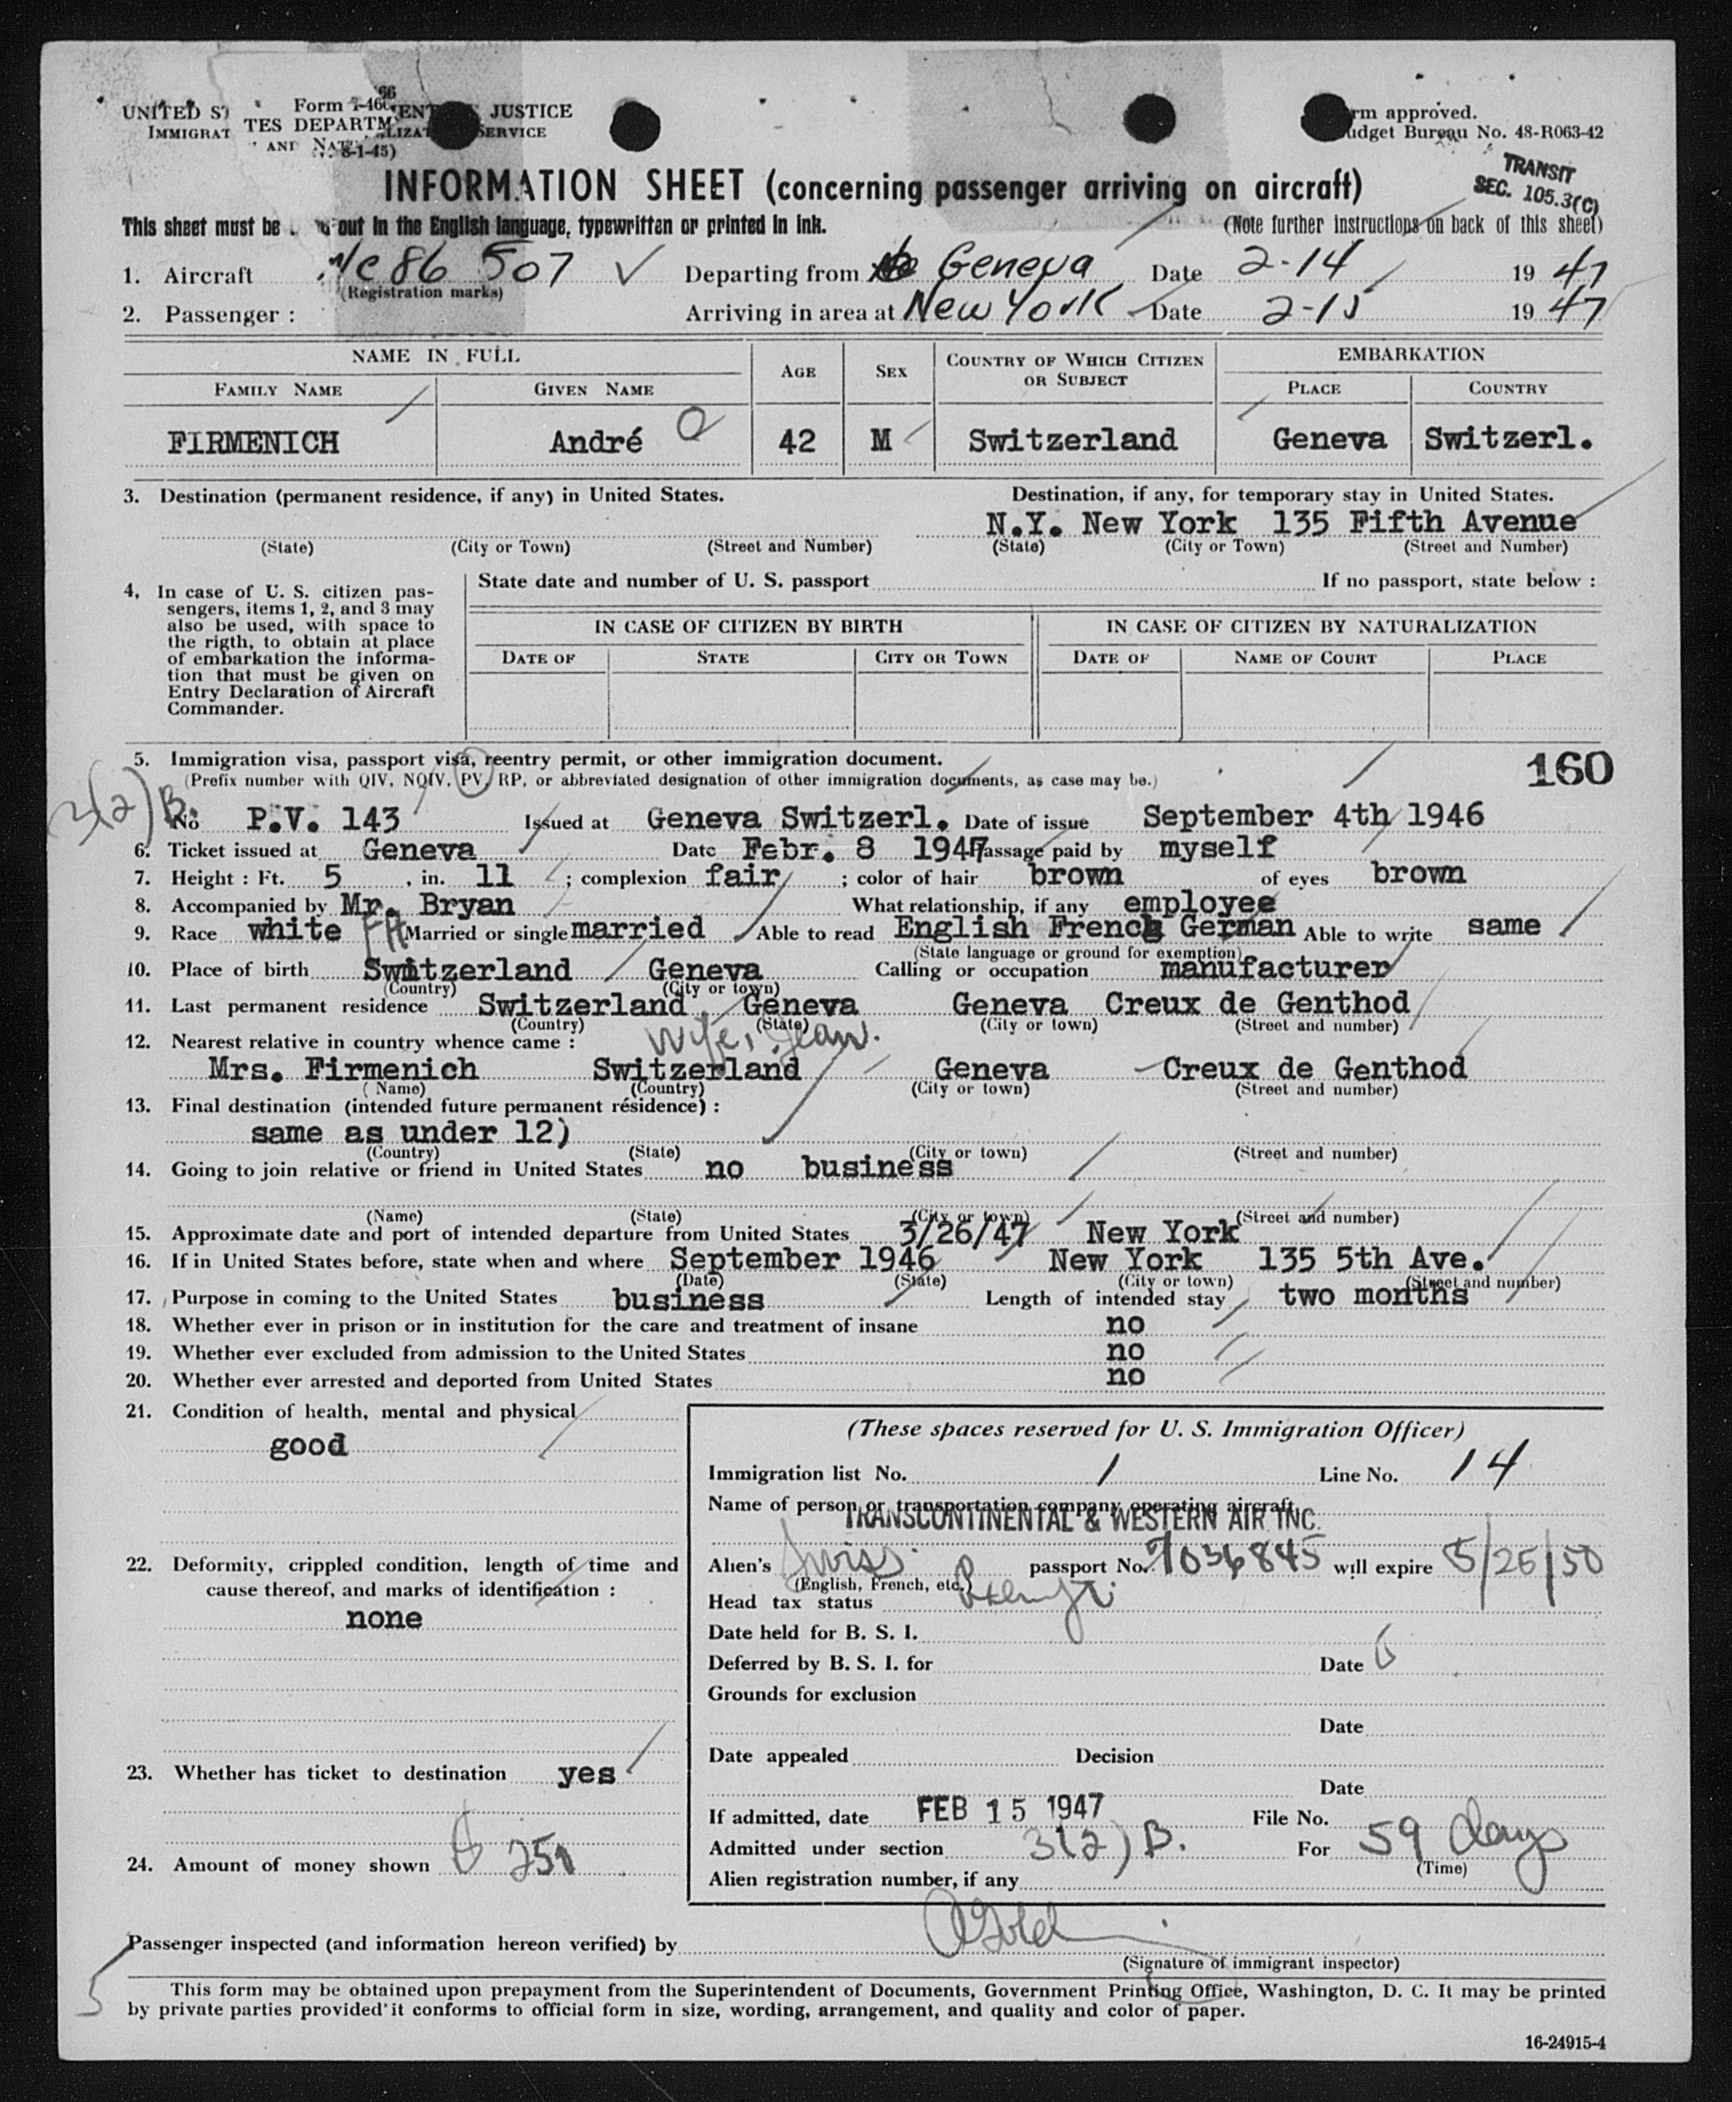 UNITED STATES DEPARTMENT JUSTICE
Form I-466
IMMIGRAT AND NAT LIZAT SERVICE
8-1-45)
rm approved.
udget Bureau No. 48-R063-42
TRANSIT
SEC. 105.3(C)
INFORMATION SHEET (concerning passenger arriving on aircraft)
This sheet must be out in the English language, typewritten or printed in ink. (Note further instructions on back of this sheet)
1. Aircraft Nc86 507 Departing from Geneva Date 2-14 19 47
(Registration marks)
2. Passenger : Arriving in area at New York Date 2-15 19 47
NAME IN FULL AGE SEX COUNTRY OF WHICH CITIZEN OR SUBJECT EMBARKATION
FAMILY NAME GIVEN NAME PLACE COUNTRY
FIRMENICH André 42 M Switzerland Geneva Switzerl.
3. Destination (permanent residence, if any) in United States. Destination, if any, for temporary stay in United States.
N.Y. New York 135 Fifth Avenue
(State) (City or Town) (Street and Number) (State) (City or Town) (Street and Number)
4, In case of U. S. citizen pas-
sengers, items 1, 2, and 3 may
also be used, with space to
the rigth, to obtain at place
of embarkation the informa-
tion that must be given on
Entry Declaration of Aircraft
Commander.
State date and number of U. S. passport If no passport, state below :
IN CASE OF CITIZEN BY BIRTH IN CASE OF CITIZEN BY NATURALIZATION
DATE OF STATE CITY OR TOWN DATE OF NAME OF COURT PLACE
5. Immigration visa, passport visa, reentry permit, or other immigration document. 160
(Prefix number with QIV, NQIV, PV, RP, or abbreviated designation of other immigration documents, as case may be.)
3(2)B.
No P.V. 143 Issued at Geneva Switzerl. Date of issue September 4th 1946
6. Ticket issued at Geneva Date Febr. 8 1947 Passage paid by myself
7. Height : Ft. 5 , in. 11 ; complexion fair ; color of hair brown of eyes brown
8. Accompanied by Mr. Bryan What relationship, if any employee
9. Race white FH Married or single married Able to read English French German Able to write same
(State language or ground for exemption)
10. Place of birth Switzerland Geneva Calling or occupation manufacturer
(Country) (City or town)
11. Last permanent residence Switzerland Geneva Geneva Creux de Genthod
(Country) (State) (City or town) (Street and number)
12. Nearest relative in country whence came : Wife, Jean.
Mrs. Firmenich Switzerland Geneva Creux de Genthod
( Name) (Country) (City or town) (Street and number)
13. Final destination (intended future permanent résidence) :
same as under 12)
(Country) (State) (City or town) (Street and number)
14. Going to join relative or friend in United States no business
(Name) (State) (City or town) (Street and number)
15. Approximate date and port of intended departure from United States 3/26/47 New York
16. If in United States before, state when and where September 1946 New York 135 5th Ave.
(Date) (State) (City or town) (Street and number)
17. Purpose in coming to the United States business Length of intended stay two months
18. Whether ever in prison or in institution for the care and treatment of insane no
19. Whether ever excluded from admission to the United States no
20. Whether ever arrested and deported from United States no
21. Condition of health, mental and physical
good
22. Deformity, crippled condition, length of time and
cause thereof, and marks of identification :
none
23. Whether has ticket to destination yes
24. Amount of money shown $ 250
(These spaces reserved for U. S. Immigration Officer)
Immigration list No. 1 Line No. 14
Name of person or transportation company operating aircraft
TRANSCONTINENTAL & WESTERN AIR INC.
Alien's Swiss passport No. 7036845 will expire 5/25/50
(English, French, etc.)
Head tax status Exempt
Date held for B. S. I.
Deferred by B. S. I. for Date
Grounds for exclusion
Date
Date appealed Decision
Date
If admitted, date FEB 15 1947 File No.
Admitted under section 3(2) B. For 59 days
(Time)
Alien registration number, if any
Passenger inspected (and information hereon verified) by
(Signature of immigrant inspector)
This form may be obtained upon prepayment from the Superintendent of Documents, Government Printing Office, Washington, D. C. It may be printed
by private parties provided it conforms to official form in size, wording, arrangement, and quality and color of paper.
16-24915-4